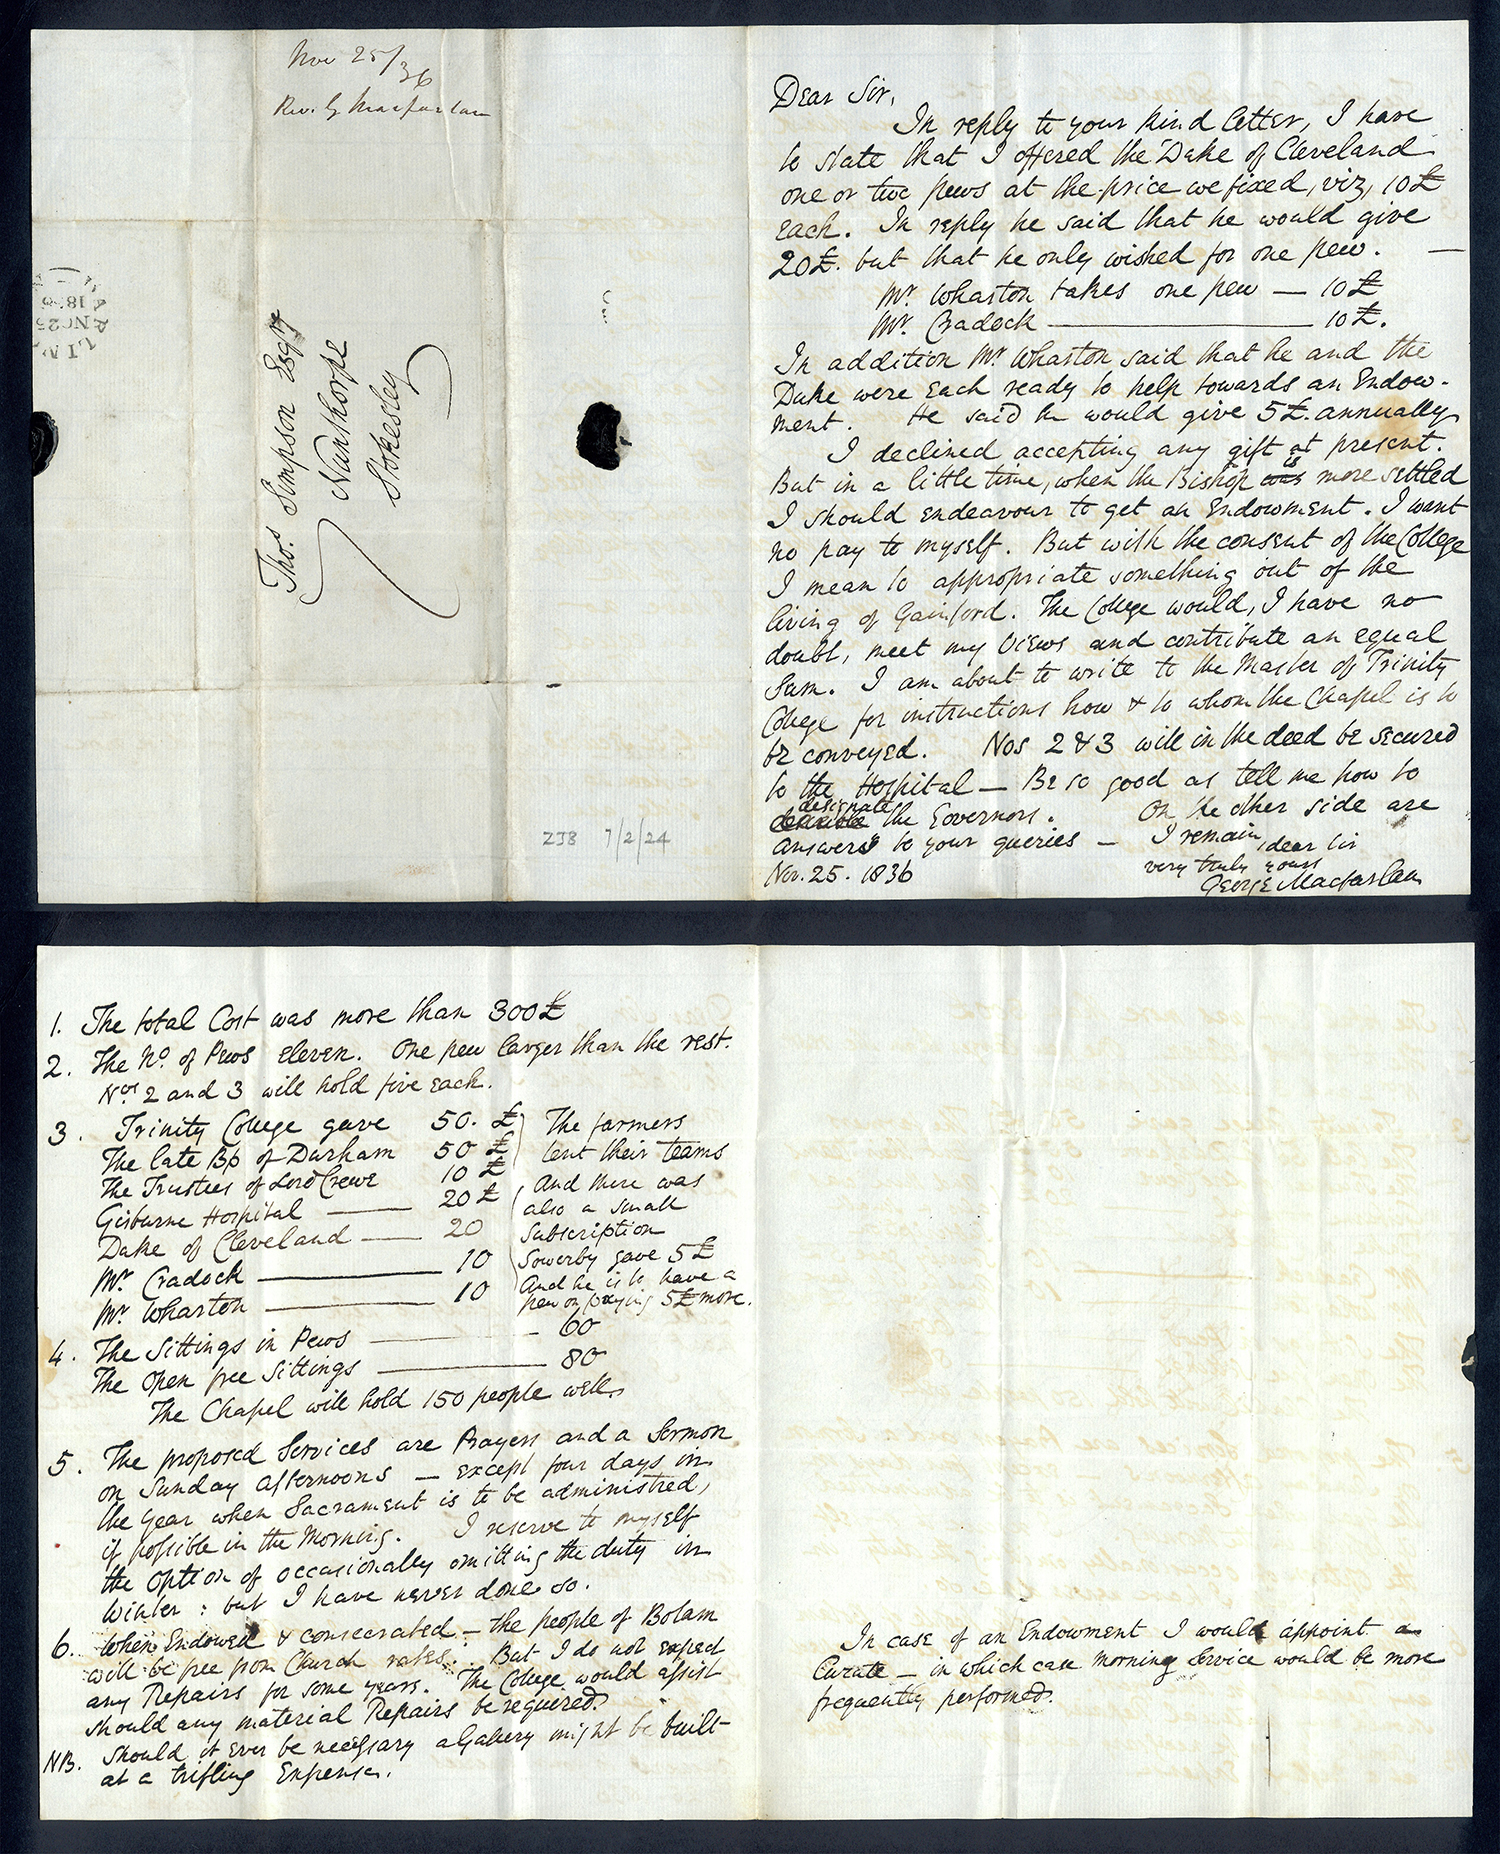 Nov 25/36
Rev. G Macfarlan
Thos. Simpson Esqre
Nunthorpe
Stokesley
ZJB 7/2/24
Dear Sir,
In reply to your kind letter, I have
to state that I offered the Duke of Cleveland
one or two pews at the price we fixed, viz, 10£
each. In reply he said that he would give
20£. but that he only wished for one pew. —
Mr. Wharton takes one pew — 10£
Mr. Cradock — 10£.
In addition Mr Wharton said that he and the
Duke were each ready to help towards an Endow-
ment. He said he would give 5£. annually
I declined accepting any gift at present.
But in a little time, when the Bishop was is more settled
I should endeavour to get an Endowment. I want
no pay to myself. But with the consent of the College
I mean to appropriate something out of the
living of Gainford. The College would, I have no
doubt, meet my views and contribute an equal
Sum. I am about to write to the Master of Trinity
College for instructions how & to whom the Chapel is to
be conveyed. Nos 2 & 3 will in the deed be secured
to the Hospital — Be so good as tell me how to
designate the Governors. On the other side are
answers to your queries — I remain, dear Sir
very truly yours
Nov. 25. 1836 George Macfarlan
1. The total Cost was more than 300£
2. The No. of Pews eleven. One pew larger than the rest.
Nos 2 and 3 will hold five each.
3. Trinity College gave 50. £
The late Bp of Durham 50 £
The Trustees of Lord Crewe 10 £
Gisburne Hospital — 20 £
Duke of Cleveland — 20
Mr. Cradock — 10
Mr. Wharton — 10
The farmers
lent their teams
And there was
also a small
subscription
Sowerby gave 5£
And he is to have a
pew on paying 5£ more.
4. The Sittings in Pews — 60
The open free Sittings — 80
The Chapel will hold 150 people well.
5. The proposed Services are Prayers and a Sermon
on Sunday afternoons — except four days in
the year when Sacrament is to be administred,
if possible in the Morning. I reserve to myself
the option of occasionally omitting the duty in
Winter: but I have never done so.
6. When Endowed & consecrated — the people of Bolam
will be free from Church rates. But I do not expect
any Repairs for some years. The College would assist
should any material Repairs be required.
NB. Should it ever be necessary a Gallery might be built
at a trifling Expense.
In case of an Endowment I would appoint a
Curate — in which case morning Service would be more
frequently performed.